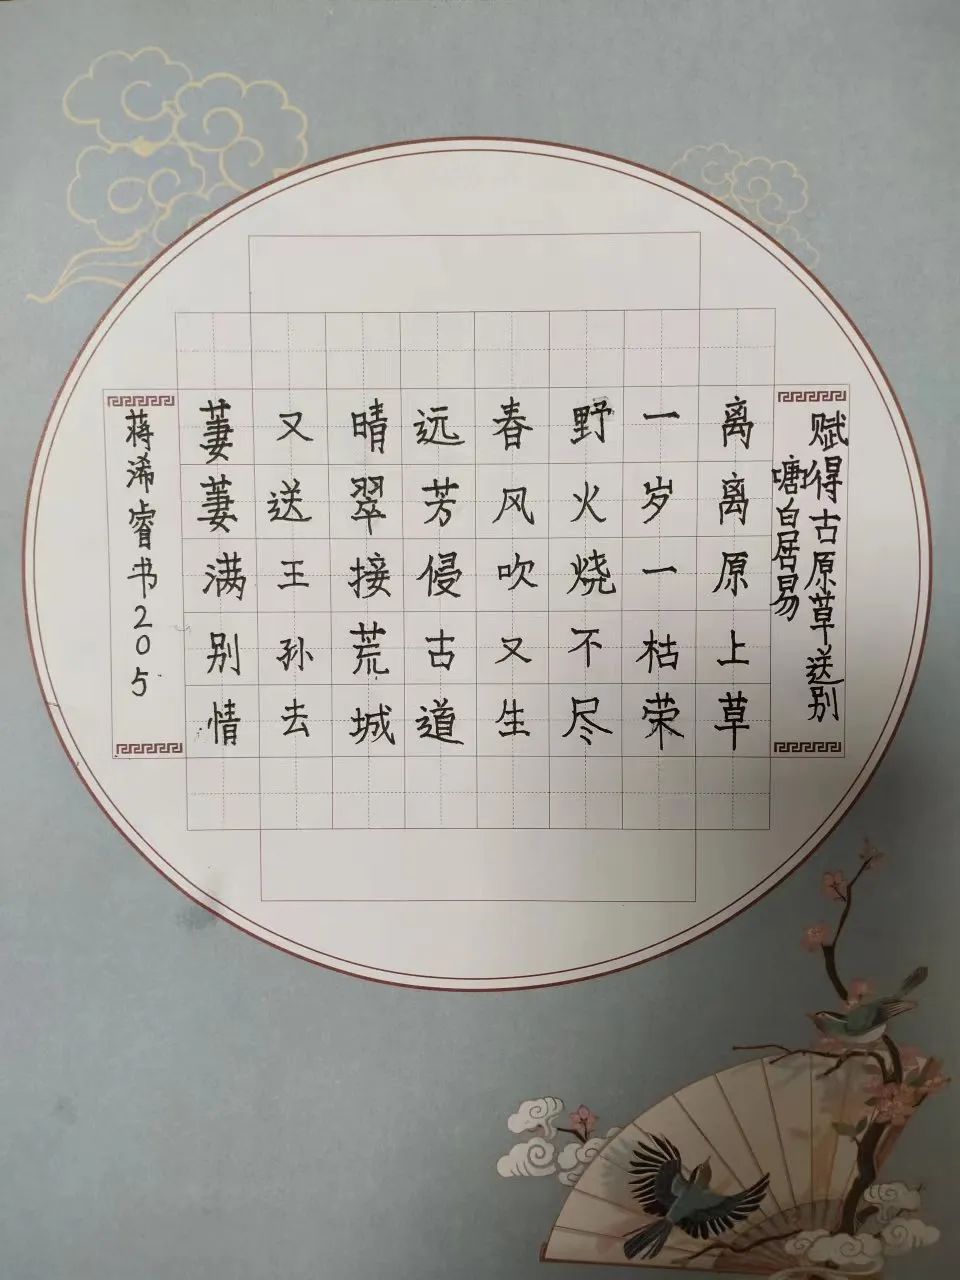 赋得古原草送别
唐白居易
离离原上草
一岁一枯荣
野火烧不尽
春风吹又生
远芳侵古道
晴翠接荒城
又送王孙去
萋萋满别情
蒋浠睿书205